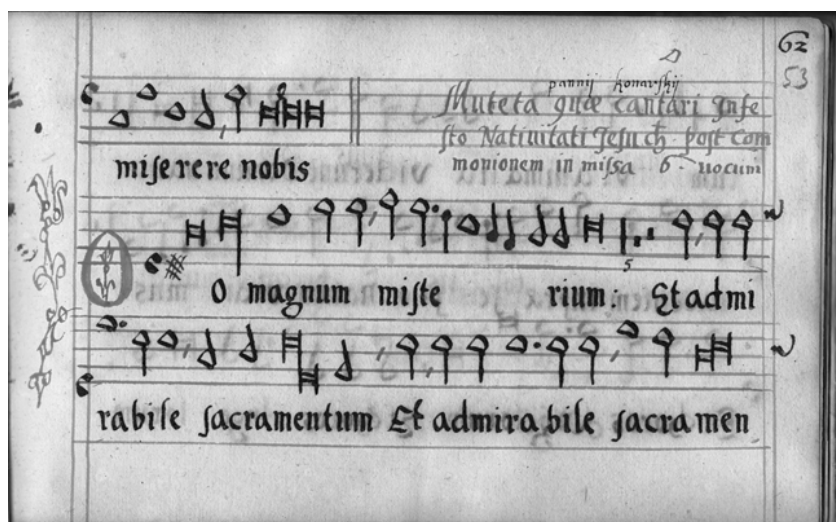 62
53
pannij konarskij
Muteta quæ cantari Infe
sto Natiuitati Jesu ch. post Com
miserere nobis
monionem in missa 6. uocum
5
O magnum miste rium: Et ad mi
rabile sacramentum Et admirabile sacramen